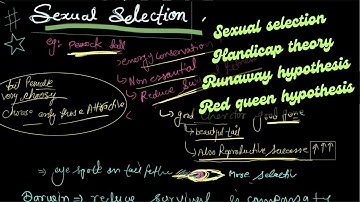 Sexual Selection
eg: Peacock tail
→ energy conservation
→ Non essential
→ Reduce
but female
very choosy
choose only those Attractive
→ good character good gene
→ beautiful tail
→ Also Reproductive successe ↑↑↑
⇒ eye spott on tail fether More selection
Darwin ⇒ reduce survival is compensate
Sexual selection
Handicap theory
Runaway hypothesis
Red queen hypothesis